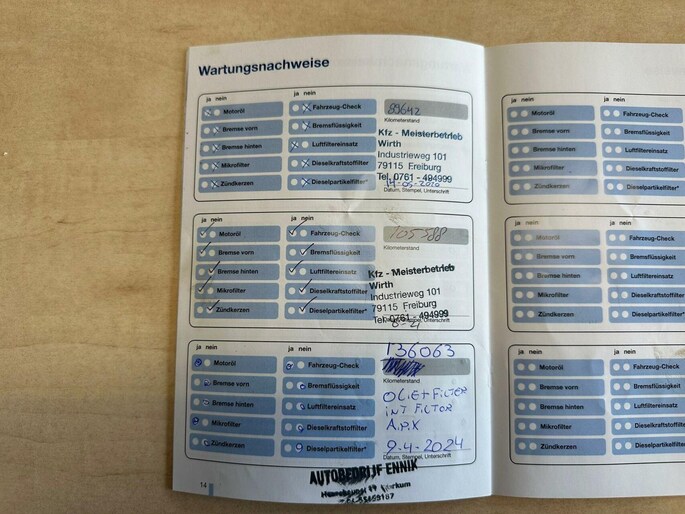 Wartungsnachweise
ja nein
ja nein
Motoröl
Fahrzeug-Check
89642
Bremse vorn
Bremsflüssigkeit
Kilometerstand
Bremse hinten
Luftfiltereinsatz
Mikrofilter
Dieselkraftstoffilter
Zündkerzen
Dieselpartikelfilter*
Kfz - Meisterbetrieb
Wirth
Industrieweg 101
79115 Freiburg
Tel. 0761 - 494999
14-05-2020
Datum, Stempel, Unterschrift
ja nein
ja nein
Motoröl
Fahrzeug-Check
105588
Bremse vorn
Bremsflüssigkeit
Kilometerstand
Bremse hinten
Luftfiltereinsatz
Mikrofilter
Dieselkraftstoffilter
Zündkerzen
Dieselpartikelfilter*
Kfz - Meisterbetrieb
Wirth
Industrieweg 101
79115 Freiburg
Tel. 0761 - 494999
Stempel, Unterschrift
ja nein
ja nein
136063
Motoröl
Fahrzeug-Check
Bremse vorn
Bremsflüssigkeit
Kilometerstand
Bremse hinten
Luftfiltereinsatz
Mikrofilter
Dieselkraftstoffilter
Zündkerzen
Dieselpartikelfilter*
OLIE+FILTER
INT FILTER
A.P.K
9-4-2024
Datum, Stempel, Unterschrift
AUTOBEDRIJF ENNIK
14
Motoröl
Fahrzeug-Check
Bremse vorn
Bremsflüssigkeit
Bremse hinten
Luftfiltereinsatz
Mikrofilter
Dieselkraftstoffilter
Zündkerzen
Dieselpartikelfilter*
Motoröl
Fahrzeug-Check
Bremse vorn
Bremsflüssigkeit
Bremse hinten
Luftfiltereinsatz
Mikrofilter
Dieselkraftstoffilter
Zündkerzen
Dieselpartikelfilter*
Motoröl
Fahrzeug-Check
Bremse vorn
Bremsflüssigkeit
Bremse hinten
Luftfiltereinsatz
Mikrofilter
Dieselkraftstoffilter
Zündkerzen
Dieselpartikelfilter*